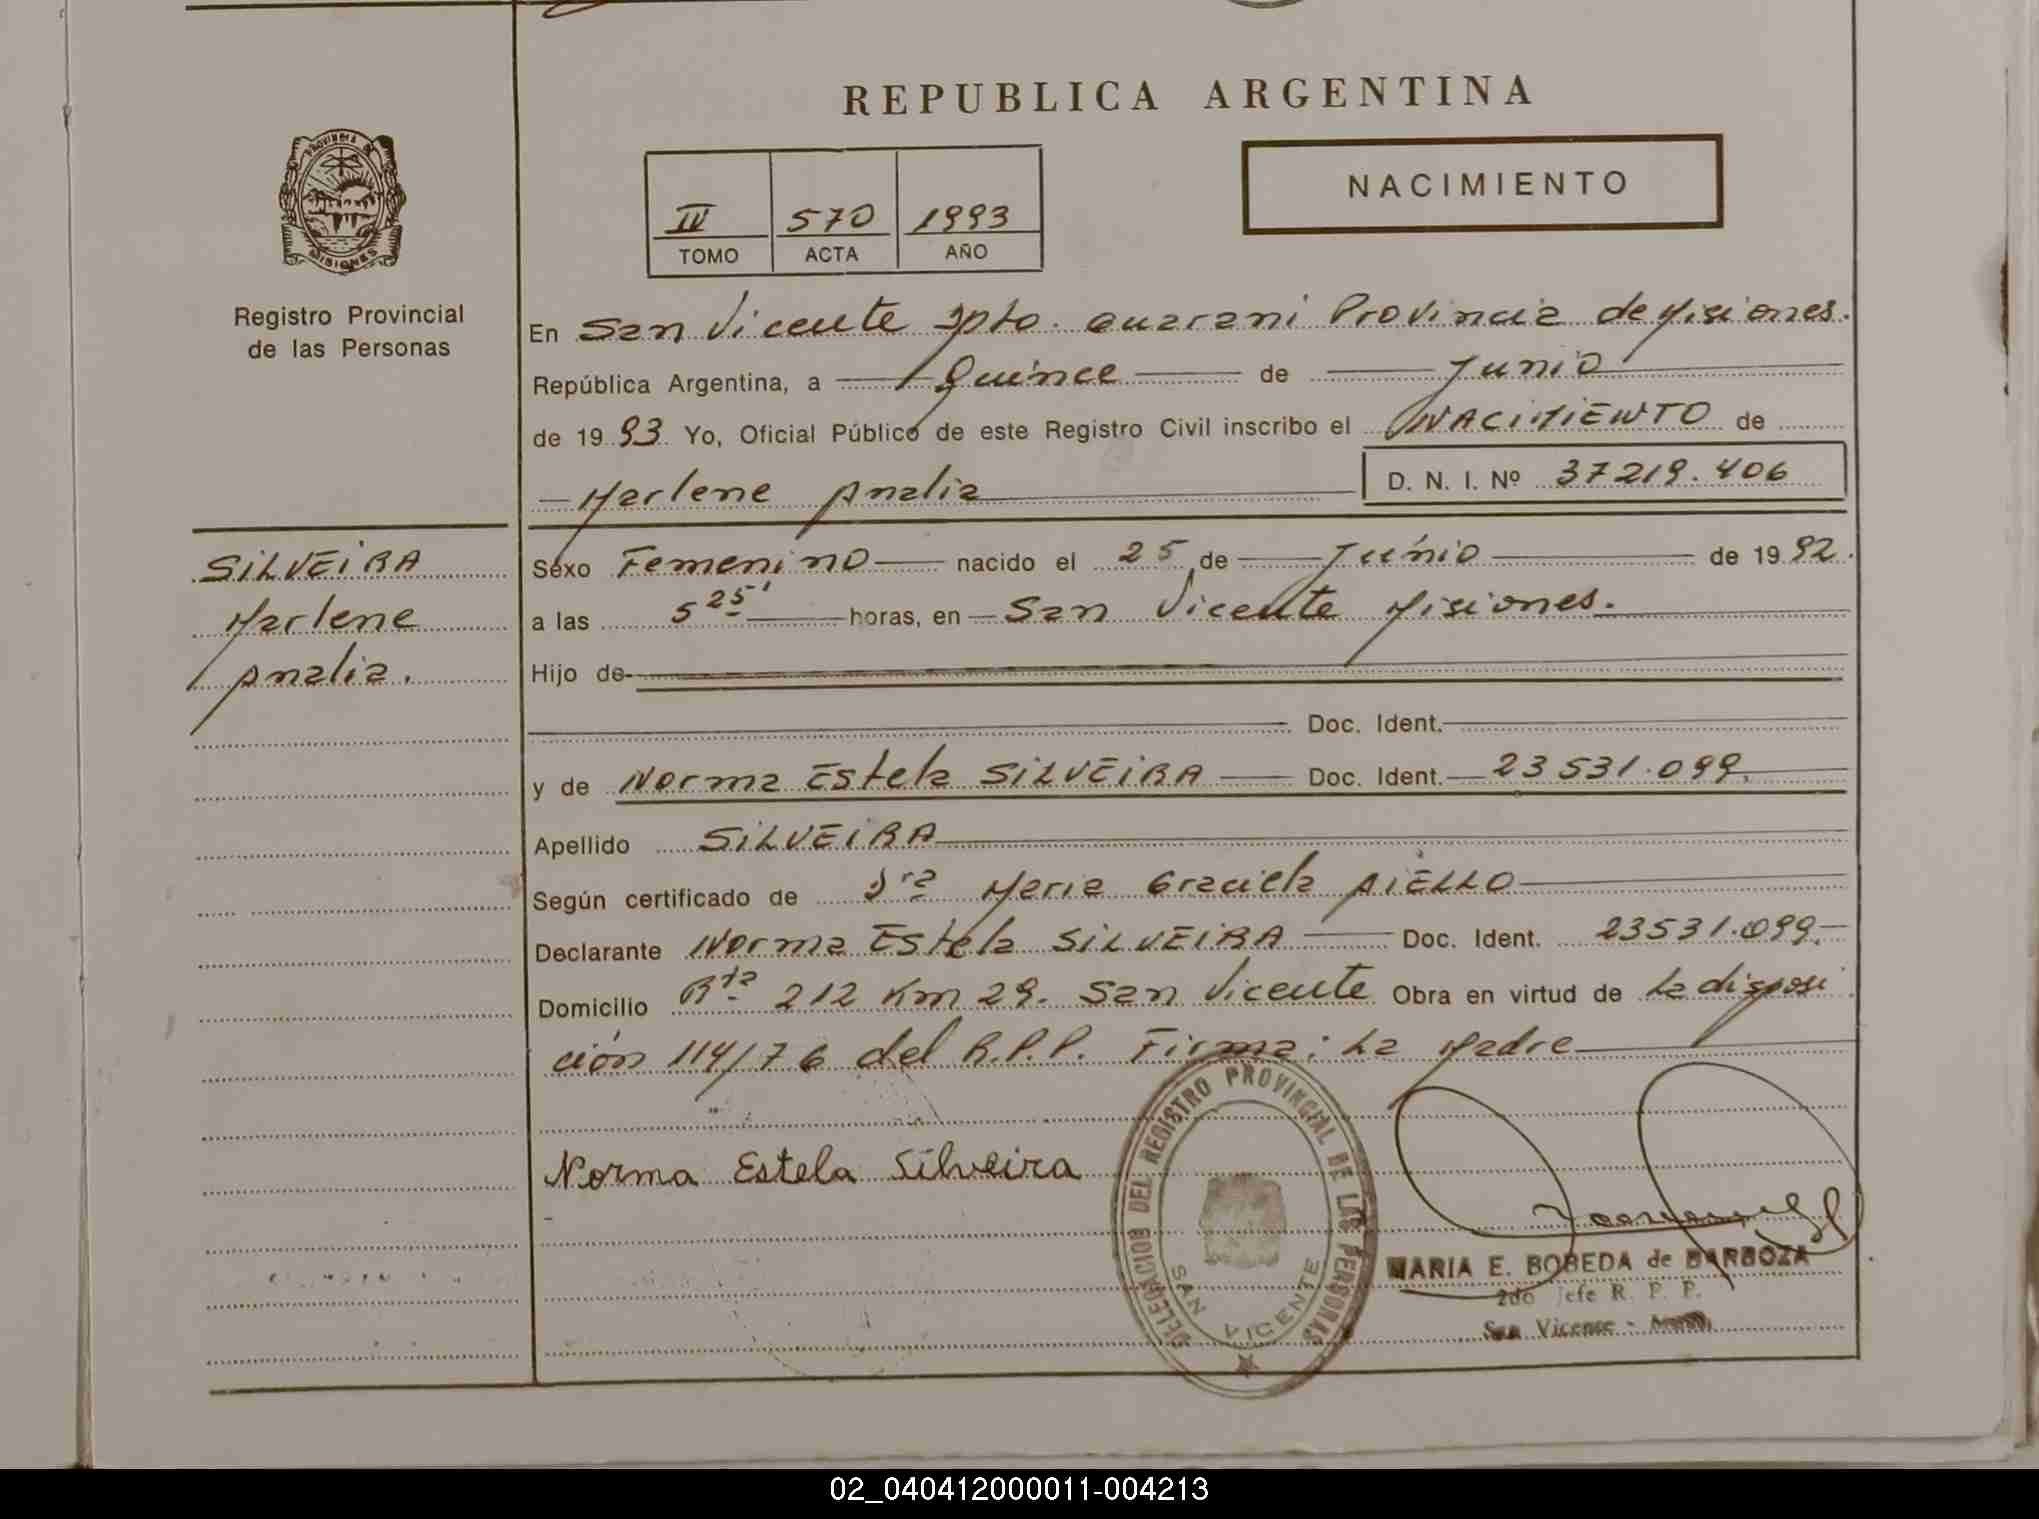 REPUBLICA ARGENTINA
PROVINCIA DE
MISIONES
Registro Provincial
de las Personas
NACIMIENTO
IV 570 1993
TOMO ACTA AÑO
En San Vicente Dpto. Guarani Provincia de Misiones.
República Argentina, a Quince de Junio
de 1993 Yo, Oficial Público de este Registro Civil inscribo el NACIMIENTO de
Marlene Analia D. N. I. Nº 37219.406
SILVEIRA
Marlene
Analia.
Sexo Femenino nacido el 25 de Junio de 1992.
a las 5 25' horas, en San Vicente Misiones.
Hijo de
Doc. Ident.
y de Norma Estela SILVEIRA Doc. Ident. 23531.099.
Apellido SILVEIRA
Según certificado de Dra Maria Graciela AIELLO
Declarante Norma Estela SILVEIRA Doc. Ident. 23531.099.
Domicilio Rta 212 Km 29. San Vicente Obra en virtud de La disposi
ción 114/76 del R.P.P. Firma: La Madre
Norma Estela Silveira
DELEGACION DEL REGISTRO PROVINCIAL DE LAS PERSONAS
SAN VICENTE
MARIA E. BOBEDA de BARBOZA
2do Jefe R. P. P.
San Vicente -
02_040412000011-004213